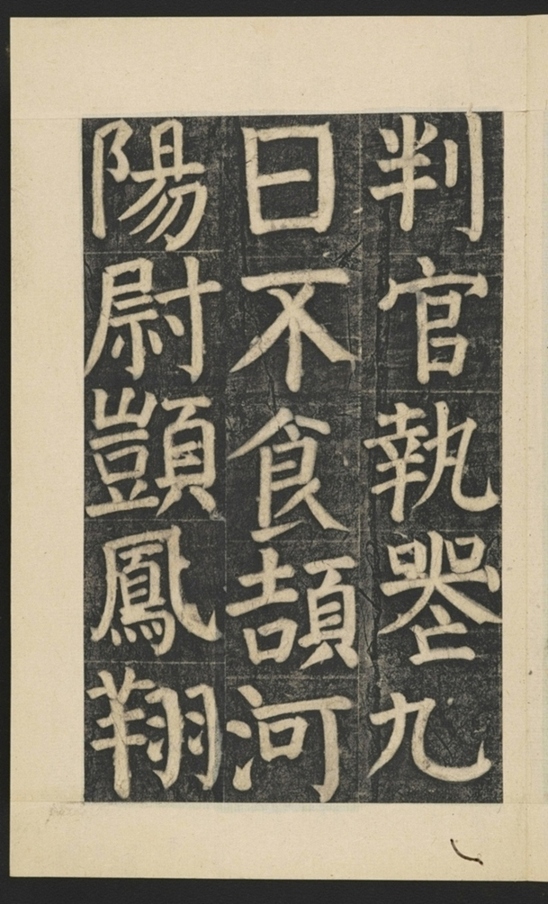 判官執喪九
日不食頡河
陽尉顗鳳翔